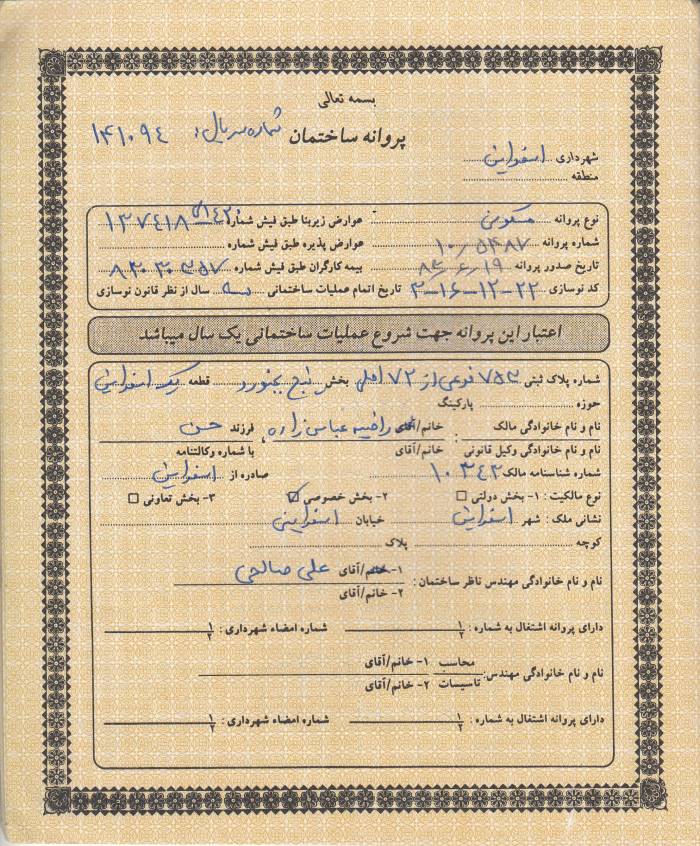 بسمه تعالی
پروانه ساختمان شماره سریال: ۱۴۱۰۹۴
شهرداری اسفراین
منطقه
نوع پروانه مسکونی عوارض زیربنا طبق فیش شماره
شماره پروانه ۱۰/۵۴۸۷ عوارض پذیره طبق فیش شماره
تاریخ صدور پروانه ۸۳/۶/۱۹ بیمه کارگران طبق فیش شماره ۸۳۰۳۰۳۵۷
کد نوسازی ۲-۱۶-۱۲-۲۲ تاریخ اتمام عملیات ساختمانی سه سال از نظر قانون نوسازی
اعتبار این پروانه جهت شروع عملیات ساختمانی یک سال میباشد
شماره پلاک ثبتی ۷۵۳ فرعی از ۷۲ اصلی بخش پنج بجنورد قطعه یک اسفراین
حوزه پارکینگ
نام و نام خانوادگی مالک : خانم/آقای راضیه عباس زاده ، فرزند حسن
نام و نام خانوادگی وکیل قانونی : خانم/آقای با شماره وکالتنامه
شماره شناسنامه مالک ۱۰۳۴۲ صادره از اسفراین
نوع مالکیت : ۱- بخش دولتی ۲- بخش خصوصی ۳- بخش تعاونی
نشانی ملک : شهر اسفراین خیابان اسفراینی
کوچه پلاک
نام و نام خانوادگی مهندس ناظر ساختمان : ۱- خانم/آقای علی صالحی
۲- خانم/آقای
دارای پروانه اشتغال به شماره : ۱ شماره امضاء شهرداری : ۱
۲ ۲
نام و نام خانوادگی مهندس: محاسب ۱- خانم/آقای
تاسیسات ۲- خانم/آقای
دارای پروانه اشتغال به شماره : ۱ شماره امضاء شهرداری : ۱
۲ ۲